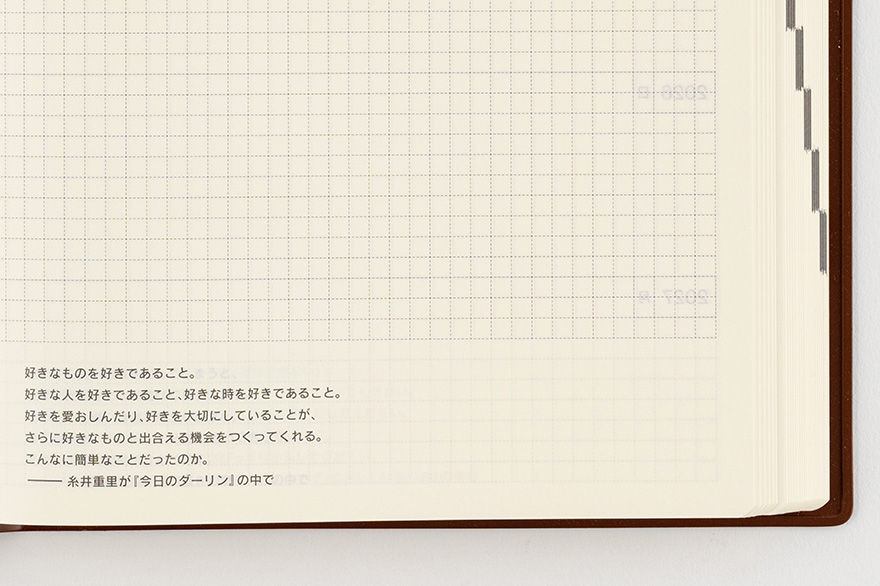 2026 日
2027 月
好きなものを好きであること。
好きな人を好きであること、好きな時を好きであること。
好きを愛おしんだり、好きを大切にしていることが、
さらに好きなものと出合える機会をつくってくれる。
こんなに簡単なことだったのか。
―― 糸井重里が『今日のダーリン』の中で